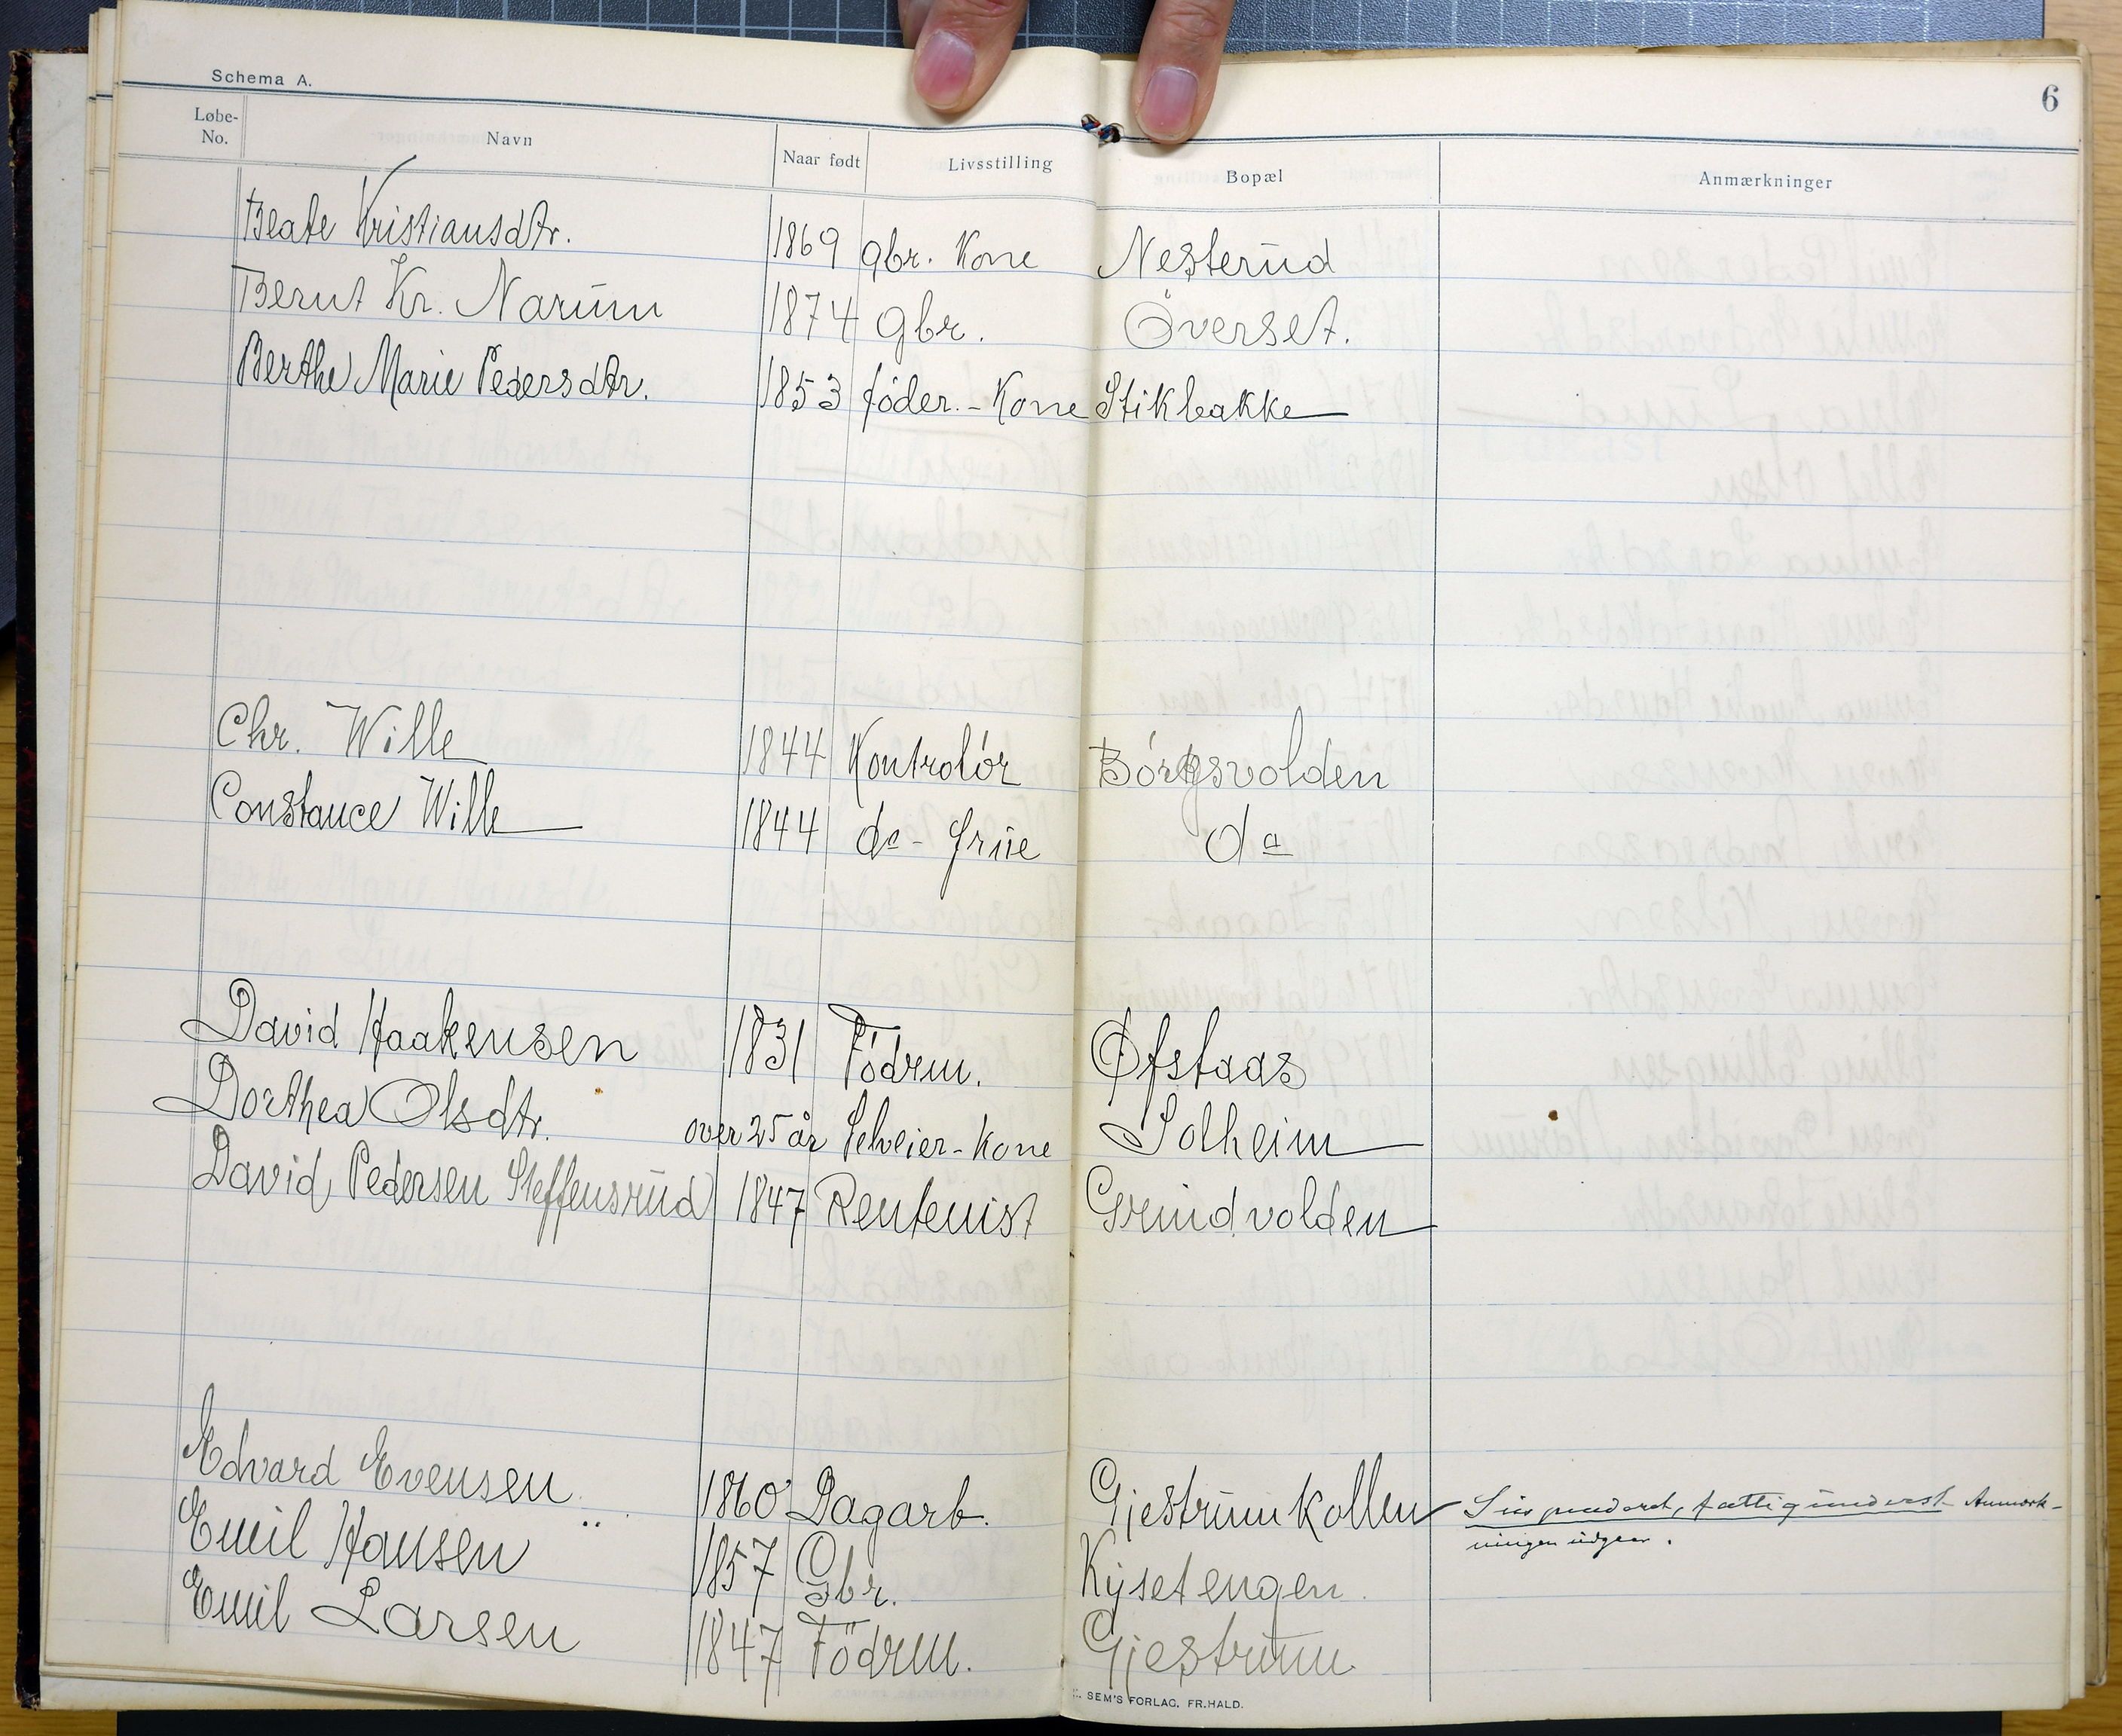 Schema A.
6
Løbe-No. Navn Naar født Livsstilling Bopæl Anmærkninger
Beate Kristiansdtr. 1869 gbr. Kone Nesterud
Bernt Kr. Narum 1874 gbr. Överset.
Berthe Marie Pedersdtr. 1853 föder.-Kone Stikbakke
Chr. Wille 1844 Kontrolör Börgsvolden
Constance Wille 1844 do- frue do
David Haakensen 1831 Födrm. Øfstaas
Dorthea Olsdtr. over 25 år Selveier-Kone Solheim
David Pedersen Steffensrud 1847 Rentenist Grindvolden
Edvard Evensen 1860 Dagarb. Gjestrumkollen Suspenderet, fattigunderst Anmærk-
ningen udgaar.
Emil Hansen 1857 Gbr. Kysetengen
Emil Larsen 1847 Födrm. Gjestrum
SEM'S FORLAG. FR.HALD.